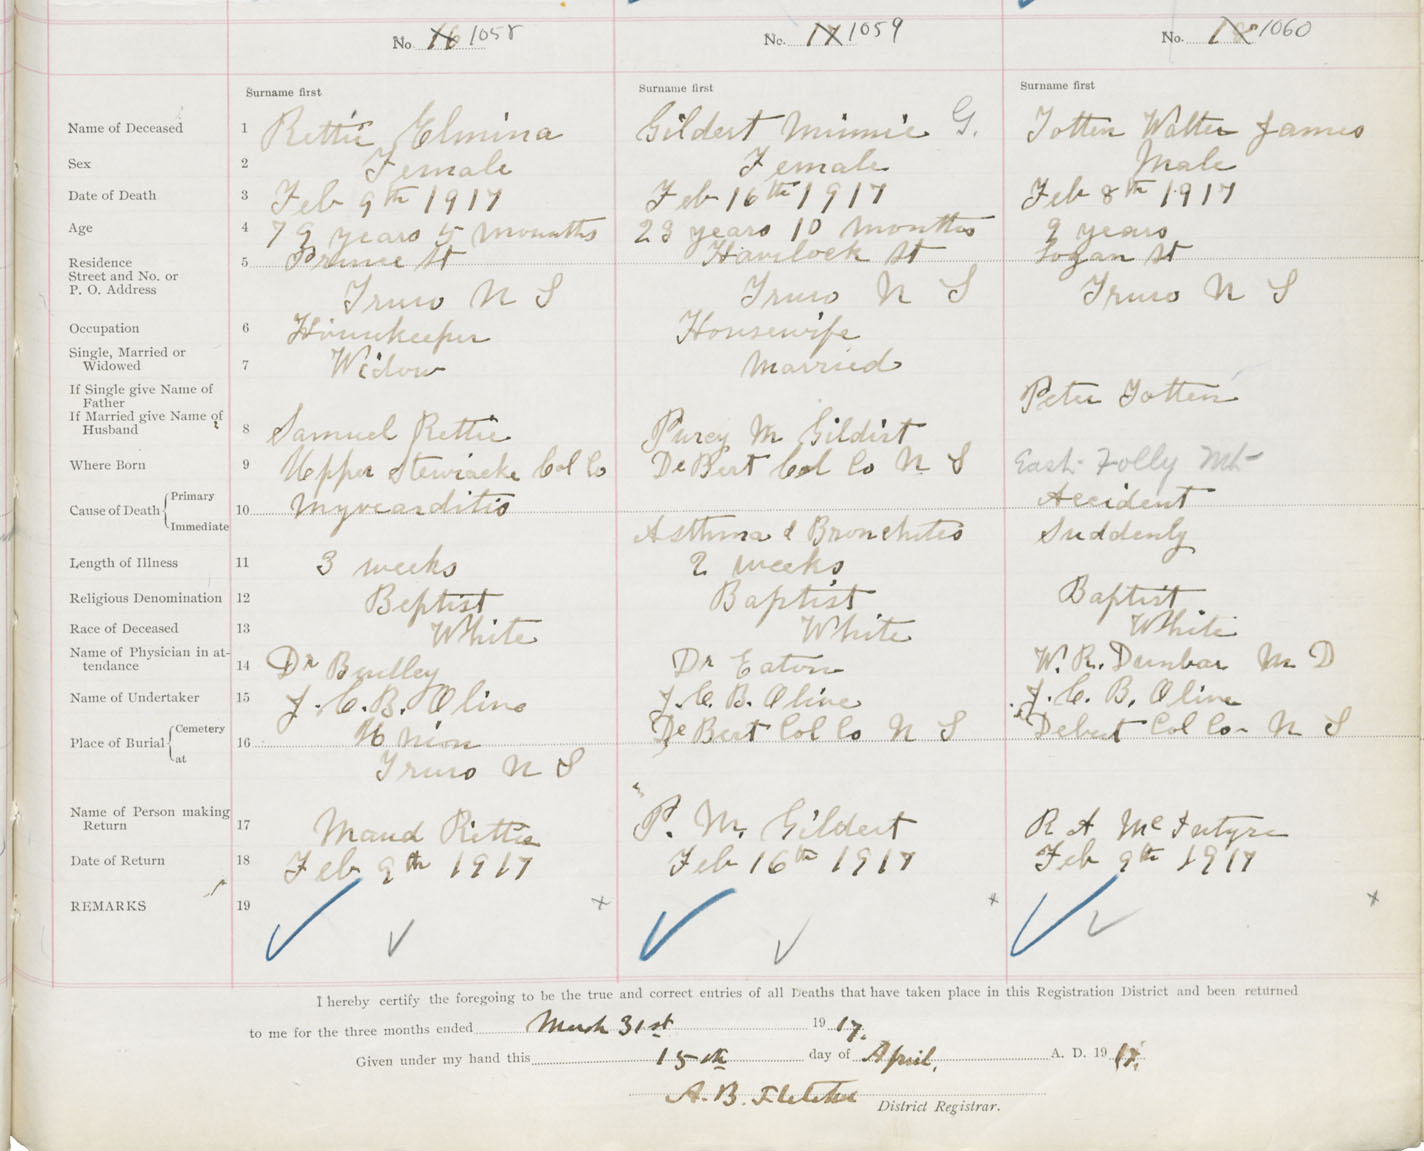 No. 16 1058
No. 17 1059
No. 18 1060
Surname first
Surname first
Surname first
Name of Deceased 1 Rettie Elmina Gildert Minnie G. Totten Walter James
Sex 2 Female Female Male
Date of Death 3 Feb 9th 1917 Feb 16th 1917 Feb 8th 1917
Age 4 79 years 5 months 23 years 10 months 9 years
Residence 5 Prince St Havilock St Logan St
Street and No. or
P. O. Address Truro N S Truro N S Truro N S
Occupation 6 Housekeeper Housewife
Single, Married or
Widowed 7 Widow Married
If Single give Name of
Father Peter Totten
If Married give Name of
Husband 8 Samuel Rettie Purcy M Gildert
Where Born 9 Upper Stewiacke Col Co DeBert Col Co N S East Folly Mt
Cause of Death { Primary 10 Myocarditis Accident
Immediate Asthma & Bronchites Suddenly
Length of Illness 11 3 weeks 2 weeks
Religious Denomination 12 Beptist Baptist Baptist
Race of Deceased 13 White White White
Name of Physician in at-
tendance 14 Dr Dr Eaton W. R. Dunbar M D
Name of Undertaker 15 J. C. B. Olive J. C. B. Olive J. C. B. Olive
Place of Burial { Cemetery 16 Union DeBert Col Co N S Debert Col Co N S
at Truro N S
Name of Person making
Return 17 Maud Rettie P. M. Gildert R A McIntyre
Date of Return 18 Feb 9th 1917 Feb 16th 1917 Feb 9th 1917
REMARKS 19
I hereby certify the foregoing to be the true and correct entries of all Deaths that have taken place in this Registration District and been returned
to me for the three months ended March 31st 19 17.
Given under my hand this 15th day of April, A. D. 19 17.
A. B. Fletcher
District Registrar.